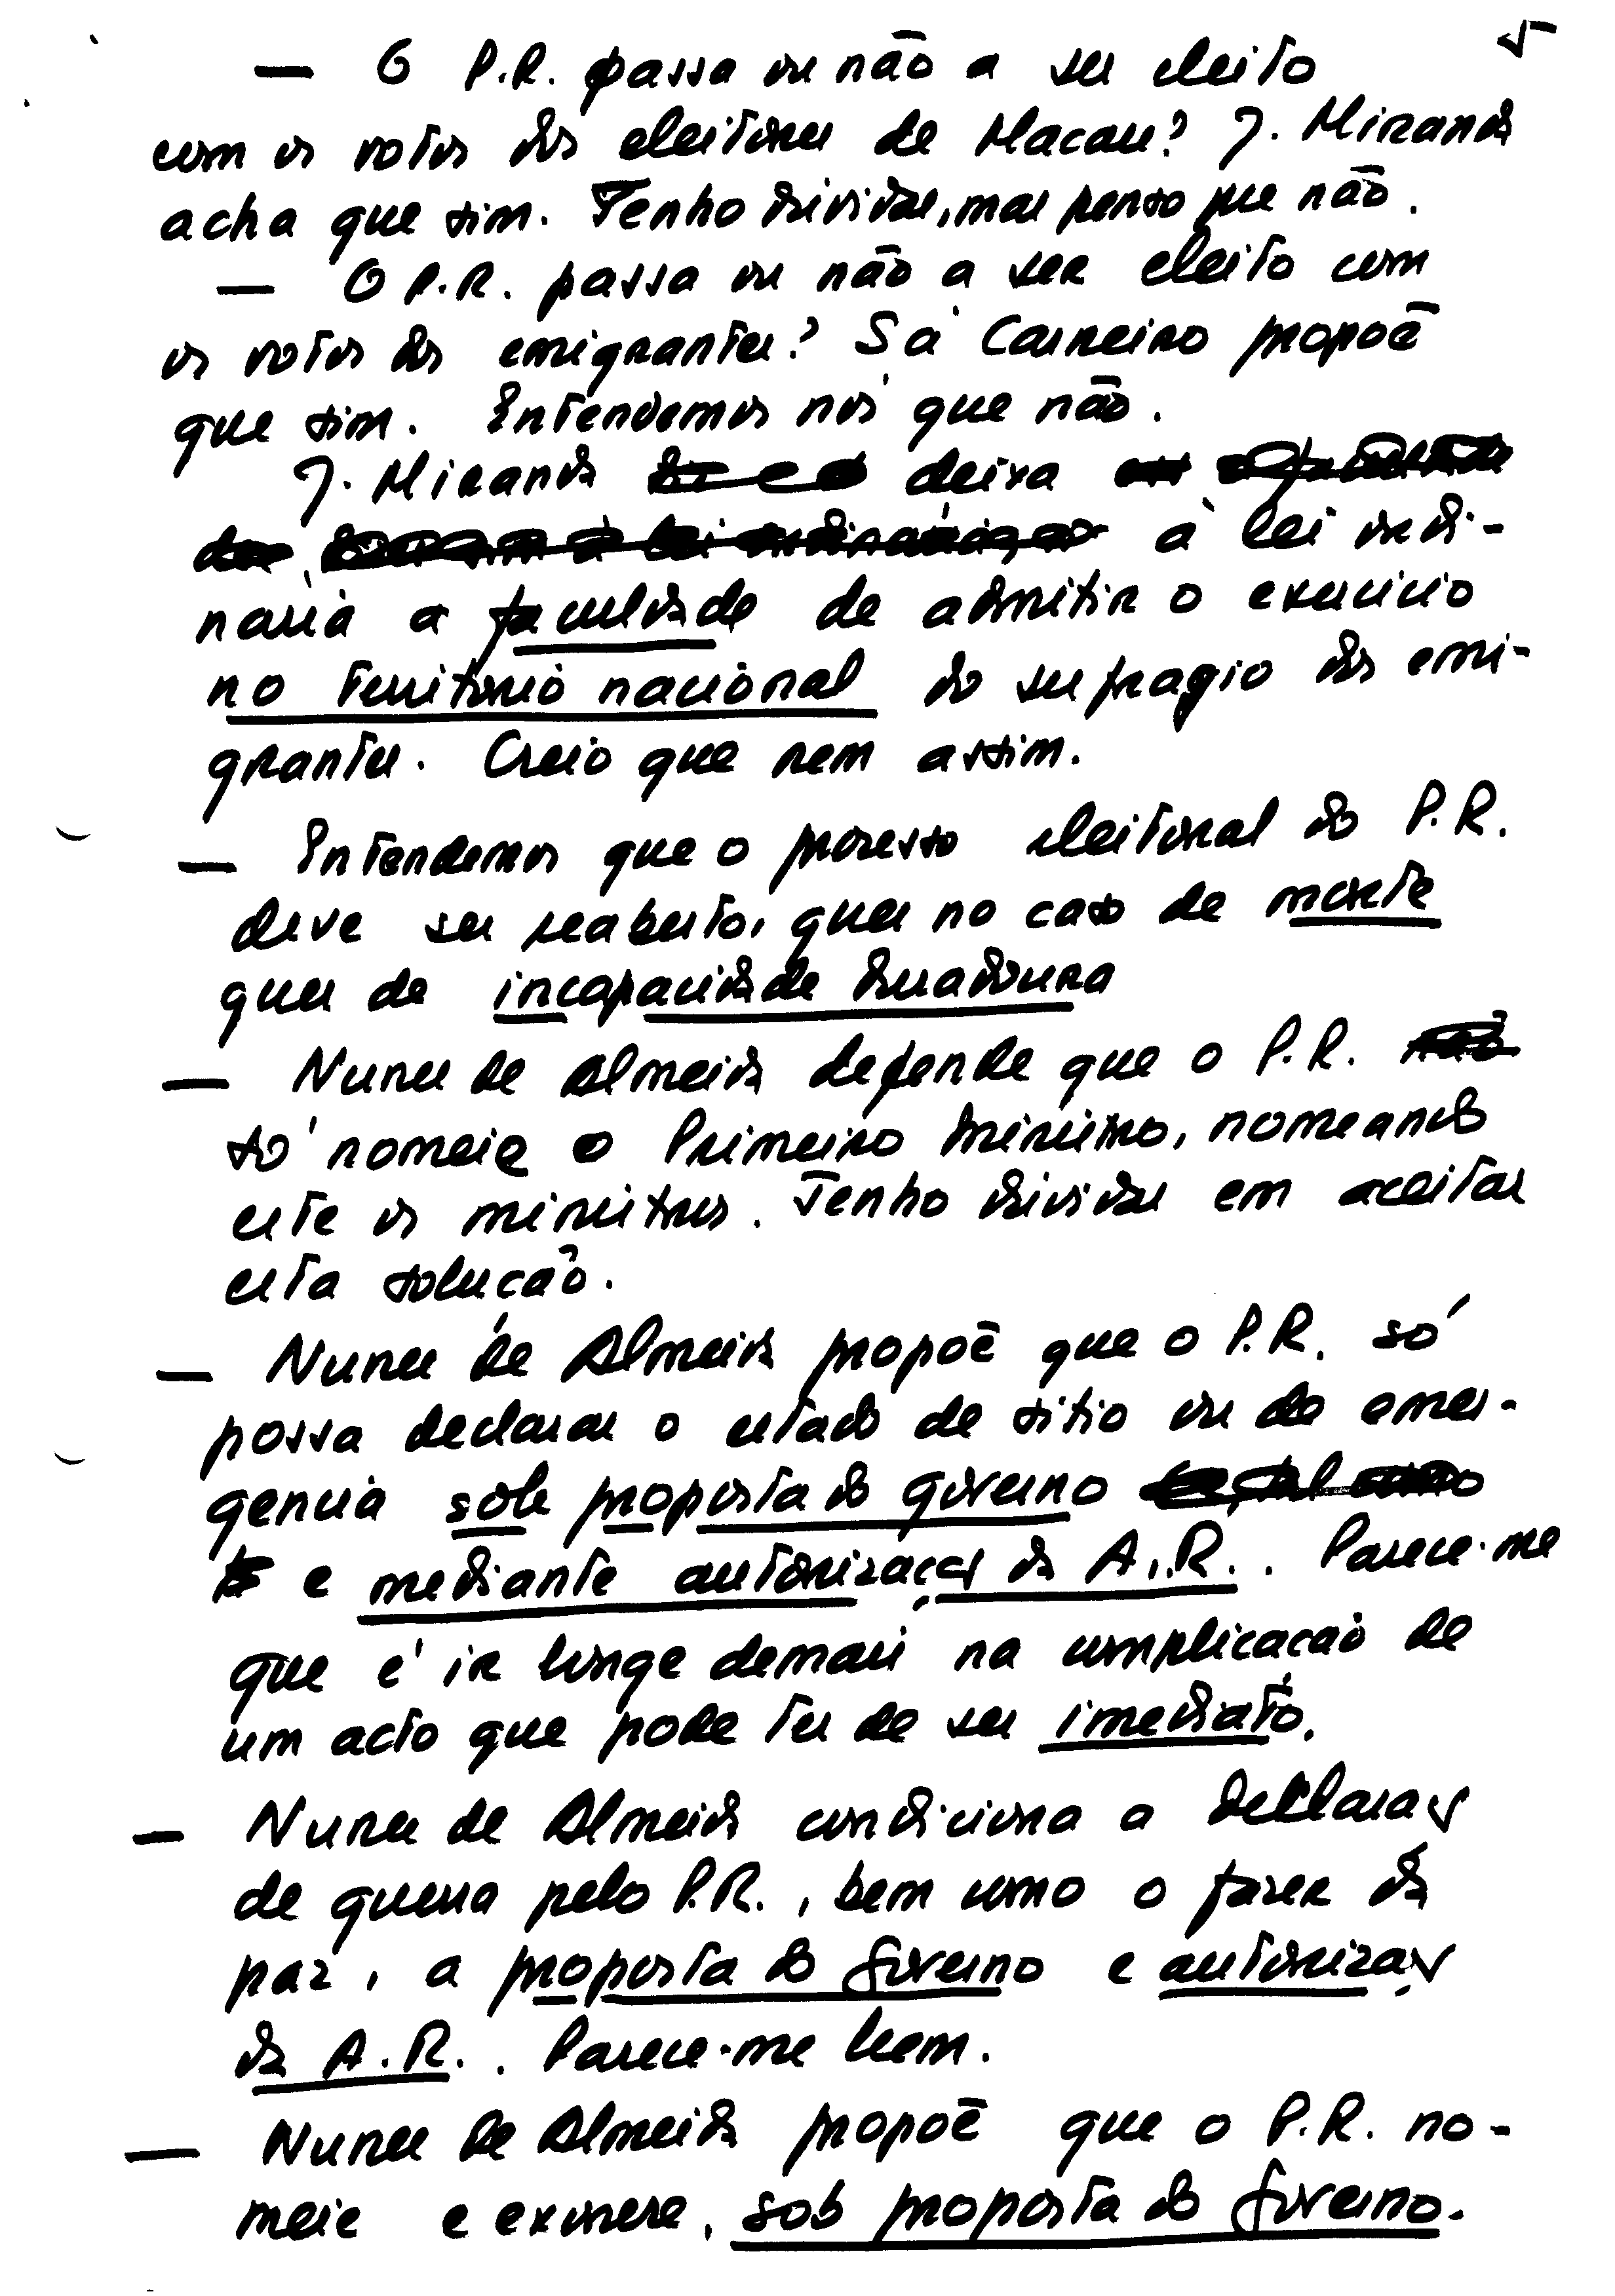 5
— O P.R. passa ou não a ser eleito
com os votos dos eleitores de Macau? J. Miranda
acha que sim. Tenho dúvidas, mas penso que não.
— O P.R. passa ou não a ser eleito com
os votos dos emigrantes? Sá Carneiro propõe
que sim. Entendemos nós que não.
J. Miranda deixa
à lei ordi-
nária a faculdade de admitir o exercício
no território nacional do sufrágio dos emi-
grantes. Creio que nem assim.
— Entendemos que o processo eleitoral do P.R.
deve ser reaberto, quer no caso de morte
quer de incapacidade duradoura
— Nunes de Almeida defende que o P.R. não
só nomeie o Primeiro Ministro, nomeando
este os ministros. Tenho dúvidas em aceitar
esta solução.
— Nunes de Almeida propõe que o P.R. só
possa declarar o estado de sítio ou de emer-
gência sob proposta do governo
e mediante autorização da A.R.. Parece-me
que é ir longe demais na complicação de
um acto que pode ter de ser imediato.
— Nunes de Almeida condiciona a declaração
de guerra pelo P.R., bem como o fazer da
paz, a proposta do Governo e autorização
da A.R.. Parece-me bem.
— Nunes de Almeida propõe que o P.R. no-
meie e exonere, sob proposta do Governo.